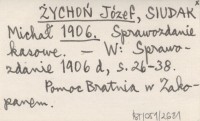 ŻYCHOŃ Józef, SIUDAK
Michał 1906. Sprawozdanie
kasowe. — W: Sprawo-
zdanie 1906 d, s. 26-38.
Pomoc Bratnia w Zako-
panem.